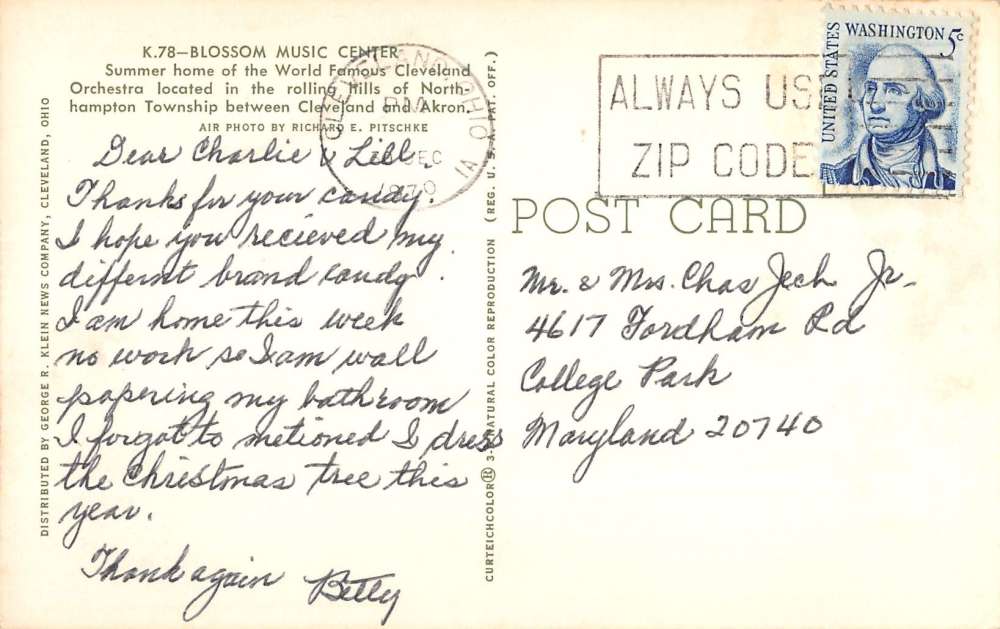 K.78—BLOSSOM MUSIC CENTER
Summer home of the World Famous Cleveland
Orchestra located in the rolling hills of North-
hampton Township between Cleveland and Akron.
AIR PHOTO BY RICHARD E. PITSCHKE
Dear Charlie & Lill.
Thanks for your candy.
I hope you recieved my
differnt brand candy.
I am home this week
no work so I am wall
papering my bathroom
I forgot to metioned I dress
the Christmas tree this
year.
Thank again Betty
DISTRIBUTED BY GEORGE R. KLEIN NEWS COMPANY, CLEVELAND, OHIO
CURTEICHCOLOR® 3-D NATURAL COLOR REPRODUCTION (REG. U. S. A. PAT. OFF.)
CLEVELAND, OHIO
PM
DEC
1970
1A
ALWAYS USE
ZIP CODE
UNITED STATES
WASHINGTON 5c
POST CARD
Mr. & Mrs. Chas Jech Jr.
4617 Fordham Rd
College Park
Maryland 20740